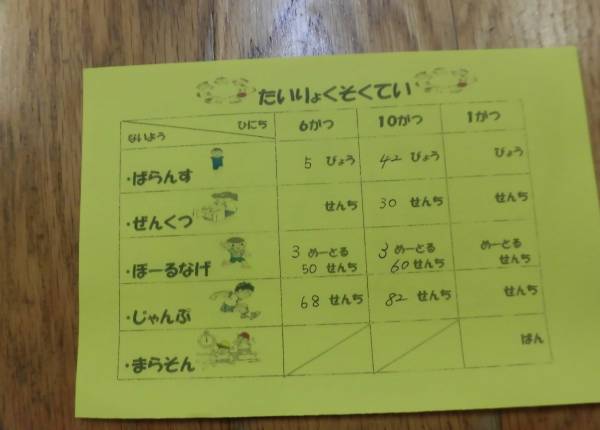 たいりょくそくてい
ひにち
ないよう
6がつ 10がつ 1がつ
・ばらんす 5 びょう 42 びょう びょう
・ぜんくつ せんち 30 せんち せんち
・ぼーるなげ 3 めーとる 50 せんち 3 めーとる 60 せんち めーとる せんち
・じゃんぷ 68 せんち 82 せんち せんち
・まらそん ばん